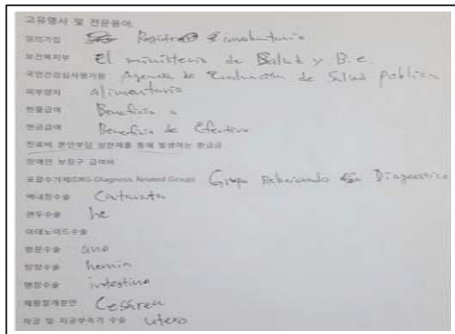 고유명사 및 전문용어
임의가입 Registro involuntario
보건복지부 El ministerio de Salud y B.e.
국민건강심사평가원 Agencia de Evaluación de Salud pública
피부양자 alimentario
현물급여 Beneficio
현금급여 Beneficio de Efectivo
진료비 본인부담 상한제를 통해 발생하는 환급금
장애인 보장구 급여비
포괄수가제(DRG-Diagnosis Related Group) Grupo Relacionado Diagnostico
백내장수술 Catarata
편도수술 he
아데노이드수술
항문수술 ano
탈장수술 hernia
맹장수술 intestino
제왕절개분만
자궁 및 자궁부속기 수술 utero